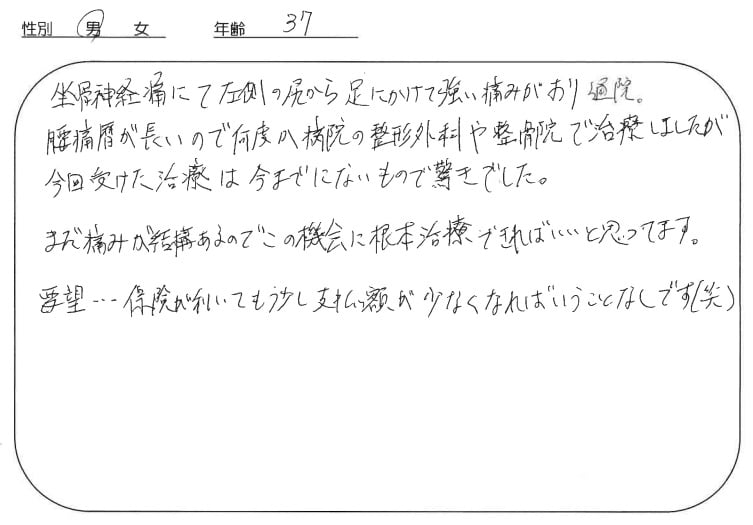 性別 男 女 年齢 37
坐骨神経痛にて左側の尻から足にかけて強い痛みがあり通院。
腰痛暦が長いので何度か病院の整形外科や整骨院で治療しましたが
今回受けた治療は今までにないもので驚きでした。
まだ痛みが結構あるのでこの機会に根本治療できればいいと思ってます。
要望…保険が利いてもう少し支払額が少なくなればいうことなしです(笑)